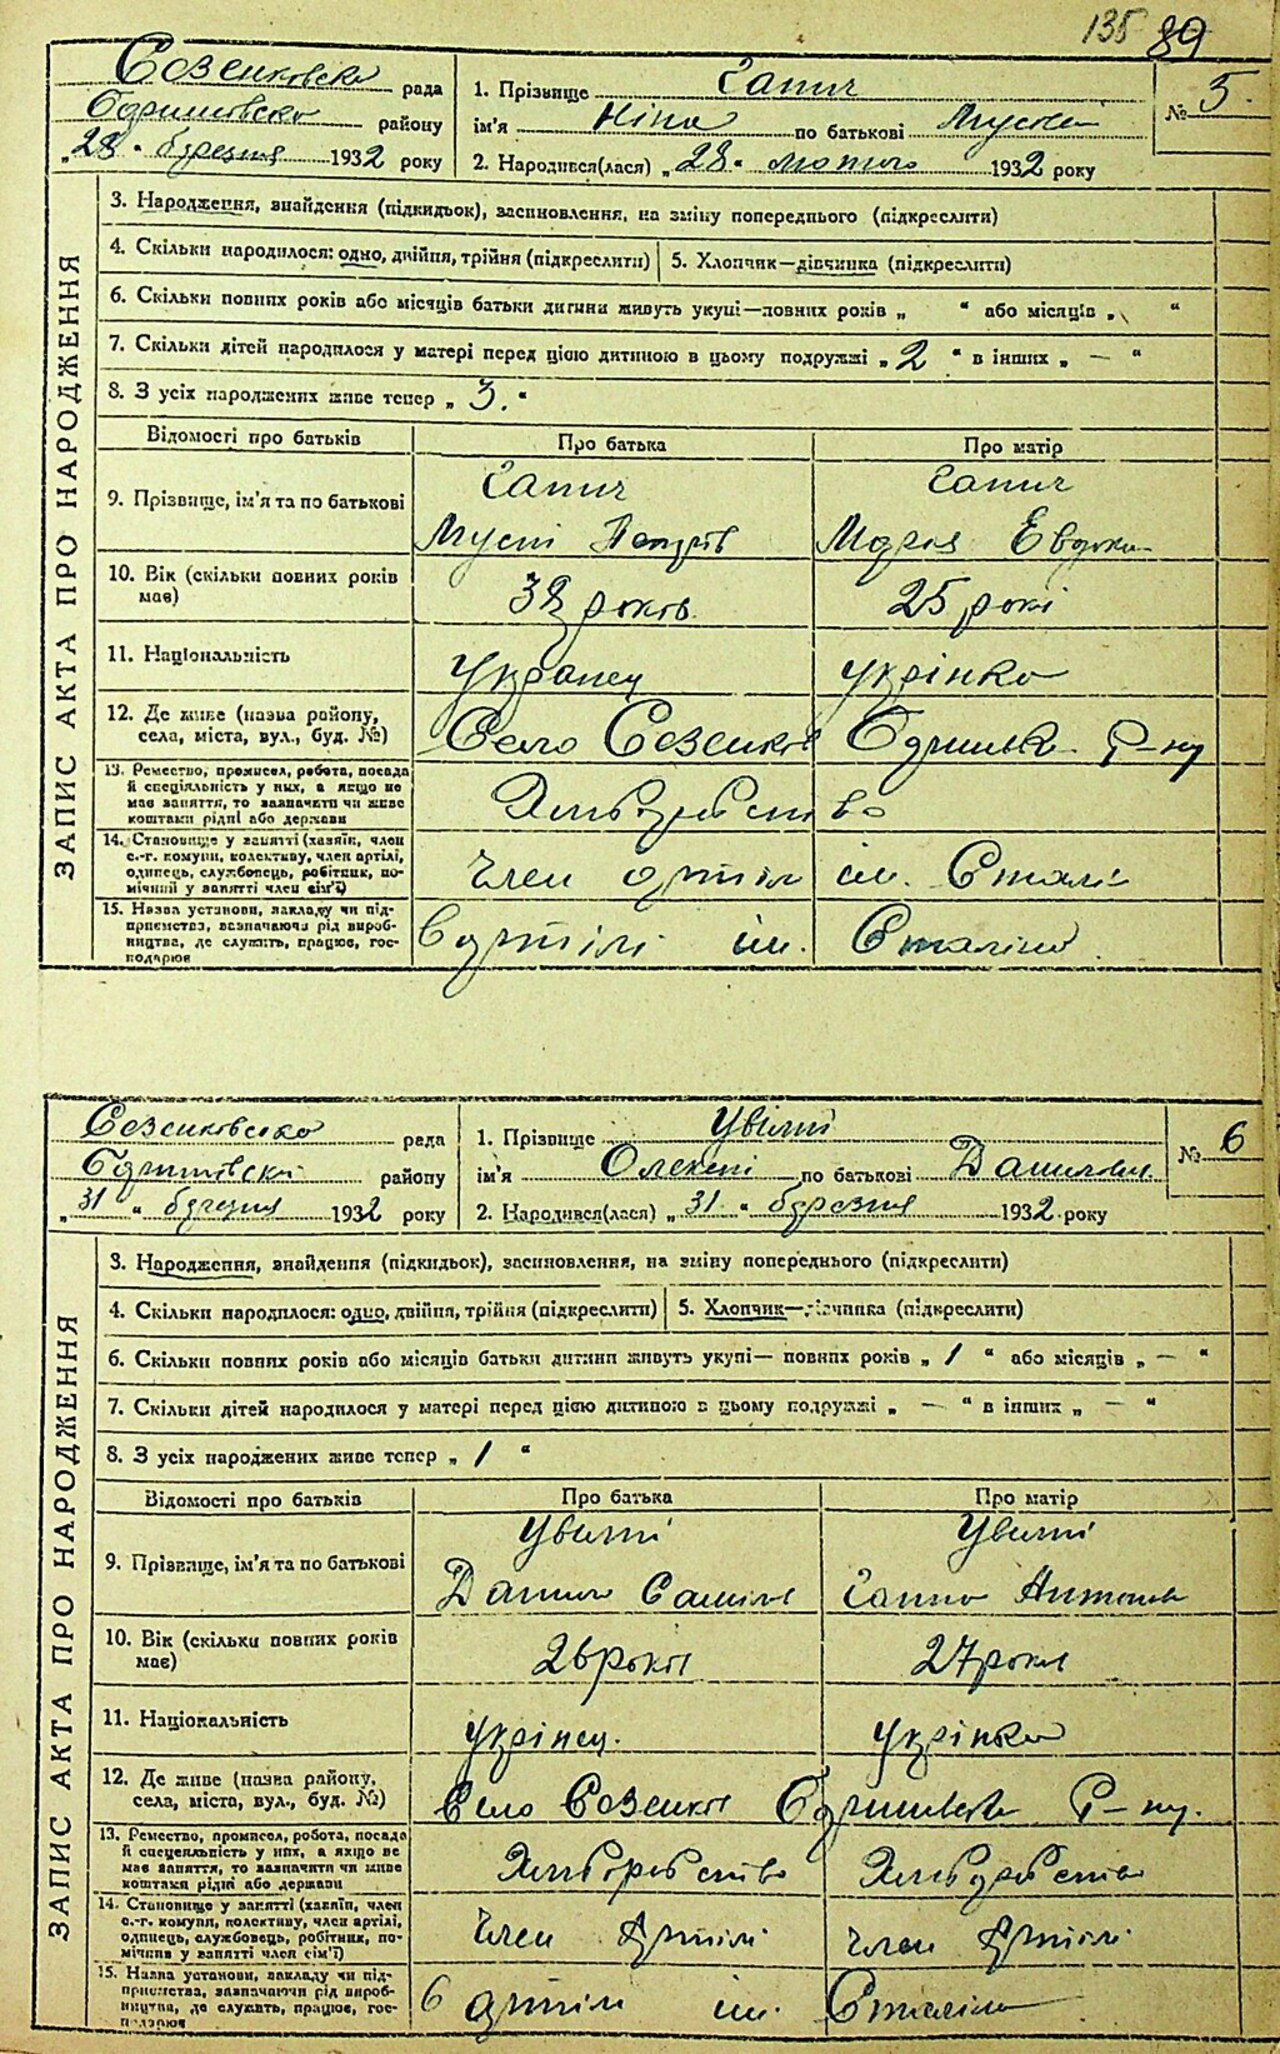 135 89
Сезенковска рада
Баришовско району
„28“ березня 1932 року
1. Прізвище Гапич
ім'я Ніна по батькові Мусієв
2. Народився(лася) „28“ лютого 1932 року
№ 5.
ЗАПИС АКТА ПРО НАРОДЖЕННЯ
3. Народження, знайдення (підкидьок), засиновлення, на зміну попереднього (підкреслити)
4. Скільки народилося: одно, двійня, трійня (підкреслити) 5. Хлопчик—дівчинка (підкреслити)
6. Скільки повних років або місяців батьки дитини живуть укупі—повних років „ “ або місяців „ “
7. Скільки дітей народилося у матері перед цією дитиною в цьому подружжі „2“ в інших „—“
8. З усіх народжених живе тепер „3.“
Відомості про батьків Про батька Про матір
9. Прізвище, ім'я та по батькові
Гапич Гапич
Мусій Петрів Мария Евдоким
10. Вік (скільки повних років має) 38 років 25 рокі
11. Національність Укранец укрінка
12. Де живе (назва району, села, міста, вул., буд. №) Село Сезенков Баришівск Р-ну
13. Ремество, промисел, робота, посада й спеціяльність у них, а якщо не має заняття, то зазначити чи живе коштами рідні або держави
Хлиборобство
14. Становище у занятті (хазяїн, член с.-г. комуни, колективу, член артілі, одинець, службовець, робітник, помічний у занятті член сім'ї)
Член артіли ім. Сталін
15. Назва установи, закладу чи підприємства, зазначаючи рід виробництва, де служить, працює, господарює
В артілі ім. Сталіна
Сезенковска рада
Баришовскі району
„31“ березня 1932 року
1. Прізвище
ім'я Олексій по батькові Данилович
2. Народився(лася) „31“ березня 1932 року
№ 6
ЗАПИС АКТА ПРО НАРОДЖЕННЯ
3. Народження, знайдення (підкидьок), засиновлення, на зміну попереднього (підкреслити)
4. Скільки народилося: одно, двійня, трійня (підкреслити) 5. Хлопчик—дівчинка (підкреслити)
6. Скільки повних років або місяців батьки дитини живуть укупі— повних років „1“ або місяців „—“
7. Скільки дітей народилося у матері перед цією дитиною в цьому подружжі „—“ в інших „—“
8. З усіх народжених живе тепер „1“
Відомості про батьків Про батька Про матір
9. Прізвище, ім'я та по батькові
Данило Самійл Ганна Антонів
10. Вік (скільки повних років має) 26 років 27 років
11. Національність укрінец. укрінка
12. Де живе (назва району, села, міста, вул., буд. №) Село Сезенків Баришівск Р-ну.
13. Ремество, промисел, робота, посада й спеціяльність у них, а якщо не має заняття, то зазначити чи живе коштами рідні або держави
Хлиборобство Хлиборобство
14. Становище у занятті (хазяїн, член с.-г. комуни, колективу, член артілі, одинець, службовець, робітник, помічний у занятті член сім'ї)
Член Артілі Член Артілі
15. Назва установи, закладу чи підприємства, зазначаючи рід виробництва, де служить, працює, господарює
В артіли ім. Сталіна